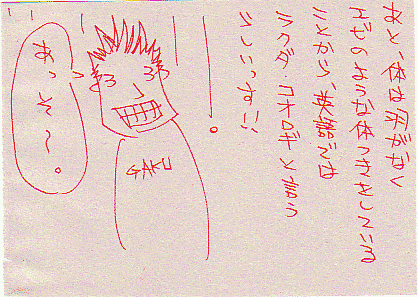 体は
エビのような体つきをしている
ことから、英語では
ラクダ・コオロギと言う
らしいっす
GAKU
あっそ〜。